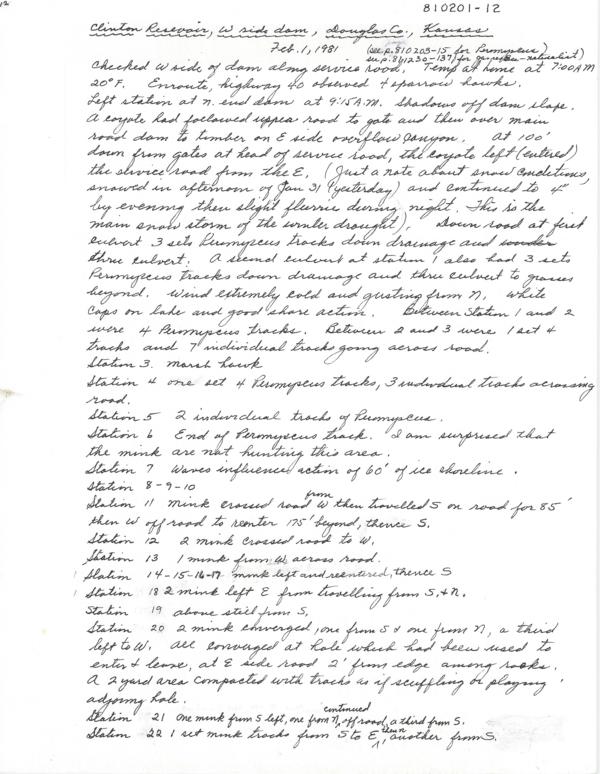 12
810201-12
Clinton Resevoir, W side dam, Douglas Co., Kansas
Feb. 1, 1981 (see p. 810203-15 for Peromyscus)
(see p. 811230-137) for naturalist)
Checked W side of dam along service road. Temp at home at 7:00 AM
20°F. Enroute, highway 40 observed 4 sparrow hawks.
Left station at N. end dam at 9:15 A.M. Shadows off dam slope.
A coyote had followed upper road to gate and then over main
road dam to timber on E side overflow canyon. At 100'
down from gates at head of service road, the coyote left (entered)
the service road from the E. (Just a note about snow conditions,
snowed in afternoon of Jan 31 (yesterday) and continued to 4"
by evening then slight flurrie during night. This is the
main snow storm of the winter drought). Down road at first
culvert 3 sets Peromyscus tracks down drainage and
thru culvert. A second culvert at station 1 also had 3 sets
Peromyscus tracks down drainage and thru culvert to grasses
beyond. Wind extremely cold and gusting from N, white
caps on lake and good shore action. Between Station 1 and 2
were 4 Peromyscus tracks. Between 2 and 3 were 1 set 4
tracks and 7 individual tracks going across road.
Station 3. Marsh hawk
Station 4 one set 4 Peromyscus tracks, 3 individual tracks acrossing
road.
Station 5 2 individual tracks of Peromyscus.
Station 6 End of Peromyscus track. I am surprised that
the mink are not hunting this area.
Station 7 Waves influence action of 60' of ice shoreline.
Station 8-9-10
Station 11 Mink crossed road from W then travelled S on road for 85'
then W off road to reenter 175' beyond, thence S.
Station 12 2 mink crossed road to W.
Station 13 1 mink from W across road.
Station 14-15-16-17 mink left and reentered, thence S
Station 18 2 mink left E from travelling from S. & N.
Station 19 above still from S.
Station 20 2 mink converged, one from S & one from N, a third
left to W. All converged at hole which had been used to
enter & leave, at E side road 2' from edge among rocks.
A 2 yard area compacted with tracks as if scuffling or playing
adjoing hole.
Station 21 One mink from S left, one from N, continued off road, a third from S.
Station 22 1 set mink tracks from S to E, then another from S.